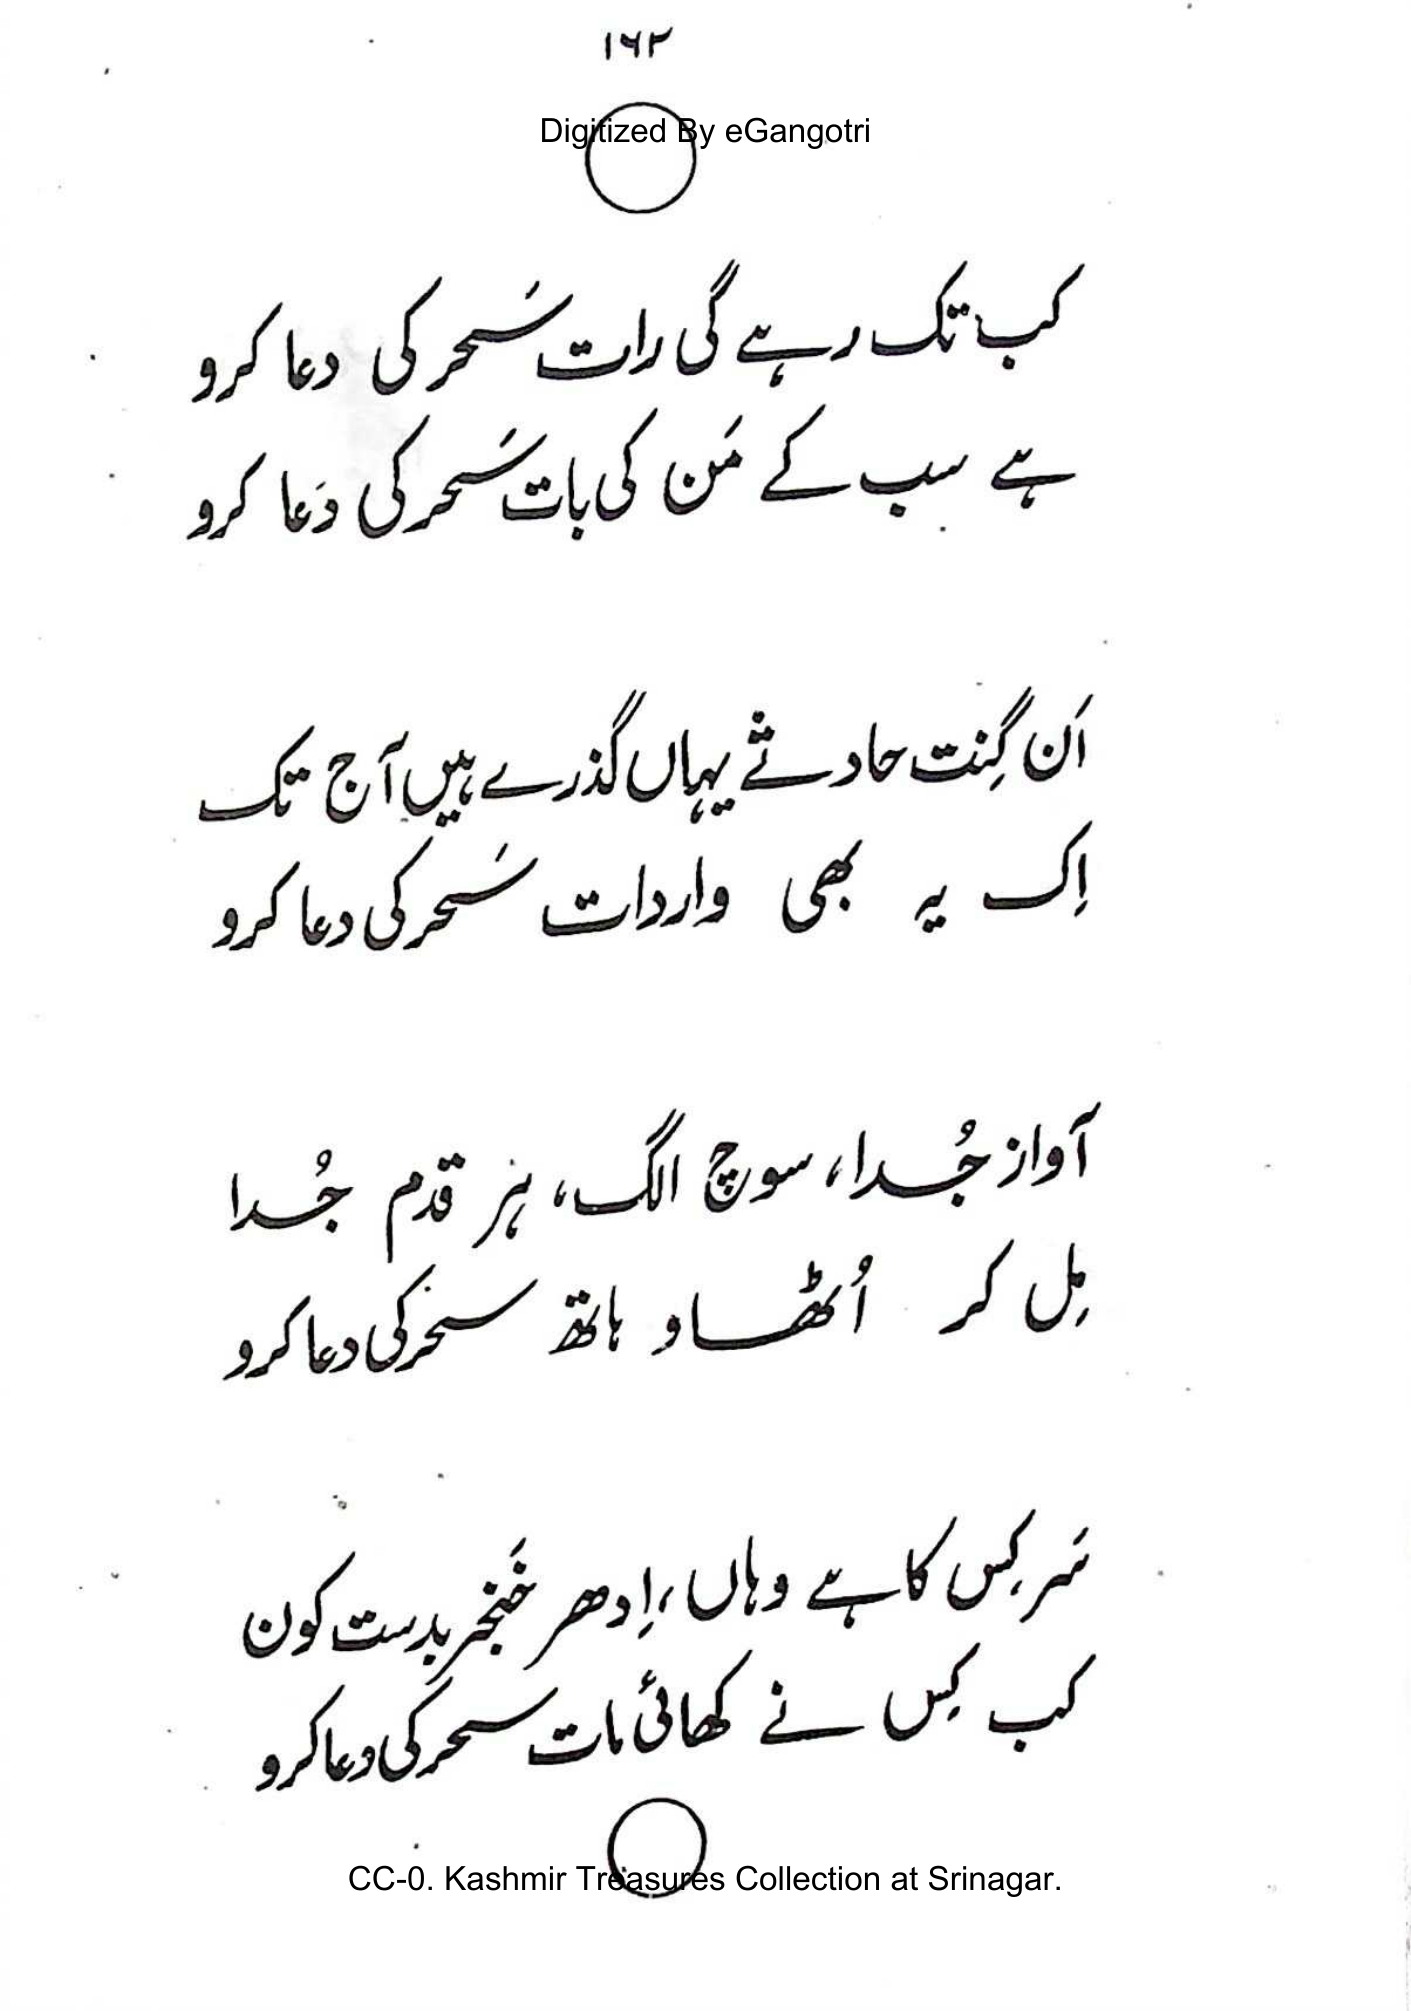 ۱۶۲
Digitized By eGangotri
کب تک رہے گی رات سَحر کی دعا کرو
ہے سب کے مَن کی بات سَحر کی دَعا کرو
اَن گِنت حادثے یہاں گذرے ہیں آج تک
اِک یہ بھی واردات سَحر کی دعا کرو
آواز جُدا، سوچ الگ، ہر قدم جُدا
مِل کر اُٹھاو ہاتھ سحر کی دعا کرو
سَر کِس کا ہے وہاں، اِدھر خَنجر بدست کون
کب کِس نے کھائی مات سحر کی دعا کرو
CC-0. Kashmir Treasures Collection at Srinagar.